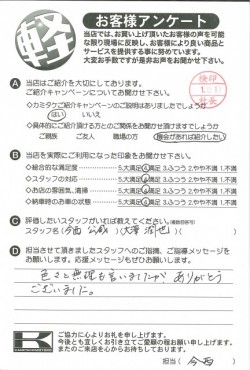 軽
お客様アンケート
当店では、お買い上げ頂いたお客様の声を可能
な限り現場に反映し、お客様により良い商品と
サービスを提供する事に努めています。
大変お手数ですが是非お声をお聞かせ下さい。
検印
社長
A 当店はご紹介を大切にしております。
ご紹介キャンペーンについてお聞かせ下さい
◇カミタケご紹介キャンペーンのご説明はありましたでしょうか。
はい いいえ
◇具体的にご紹介頂ける方とのご関係をお聞かせ頂けますでしょうか
ご親族 ご友人 職場の方 機会があれば紹介したい
B 当店を実際にご利用になった印象をお聞かせ下さい
◇総合的な満足度 5.大満足 4.満足 3.ふつう 2.やや不満 1.不満
◇スタッフの対応 5.大満足 4.満足 3.ふつう 2.やや不満 1.不満
◇お店の雰囲気、清掃 5.大満足 4.満足 3.ふつう 2.やや不満 1.不満
◇納車時のお車の状態 5.大満足 4.満足 3.ふつう 2.やや不満 1.不満
C 評価したいスタッフがいれば教えてください。(複数回答可)
スタッフ名(今西
D 担当させて頂きましたスタッフへのご指摘、ご指導メッセージを
お願いします。応援メッセージもぜひお聞かせ下さい。
色々と無理を言いましたが ありがとう
ございました。
K
ご協力に心よりお礼を申し上げます。
今後とも宜しくお引き立てご愛顧の程お願い申し上げます。
またのご来店を心からお待ちしております。
担当( 今西 )